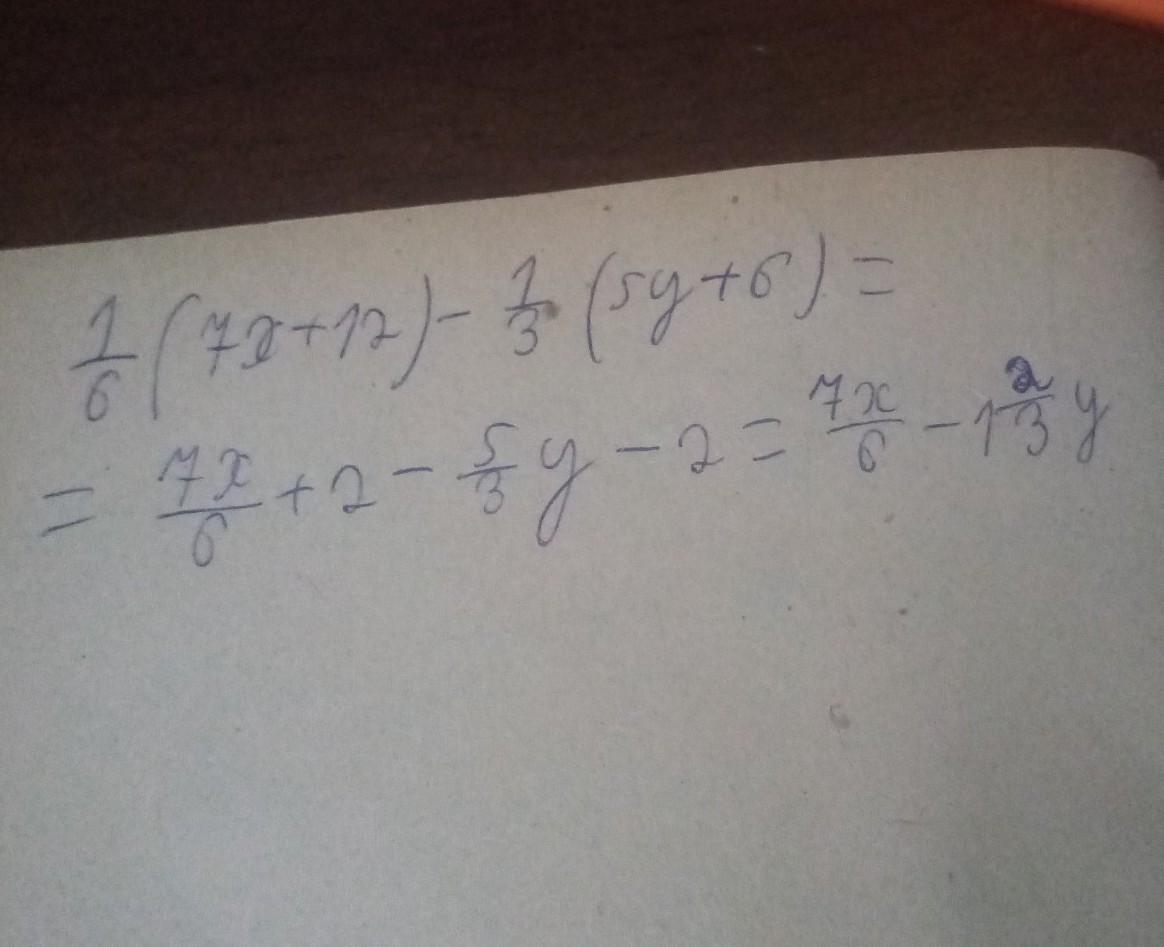 1/6 (7x+12) - 1/3 (5y+6) =
= 7x/6 + 2 - 5/3 y - 2 = 7x/6 - 1 2/3 y